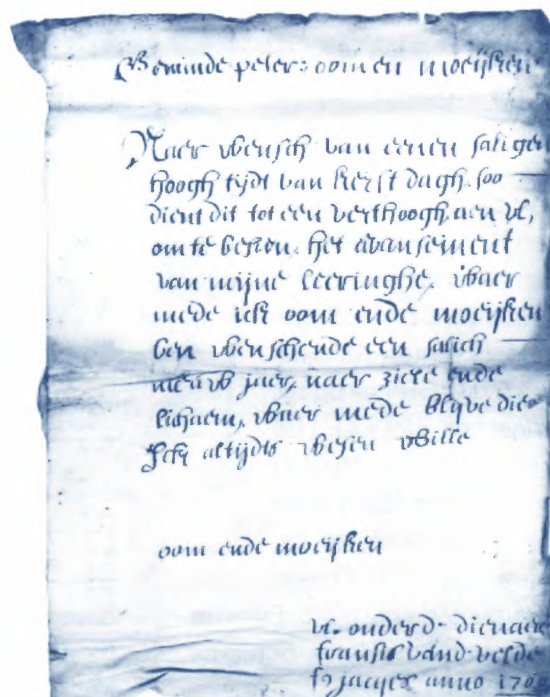 Beminde peter: oom en moeijken
Naer wensch van eenen saligen
hoogh tijdt van kerst dagh. soo
dient dit tot een verthoogh aen vl,
om te besien. het avansement
van mijne leeringhe. waer
mede ick oom ende moeijken
ben wenschende een salich
nieuw jaer, naer ziele ende
lichaem, waer mede blijve die
Ick altijdts wesen wille
oom ende moeijken
vl. onderd. dienaer
fransis vand. velde
fs jacques anno